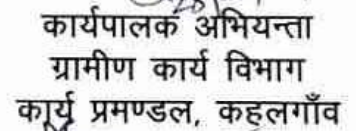 कार्यपालक अभियन्ता
ग्रामीण कार्य विभाग
कार्य प्रमण्डल, कहलगाँव